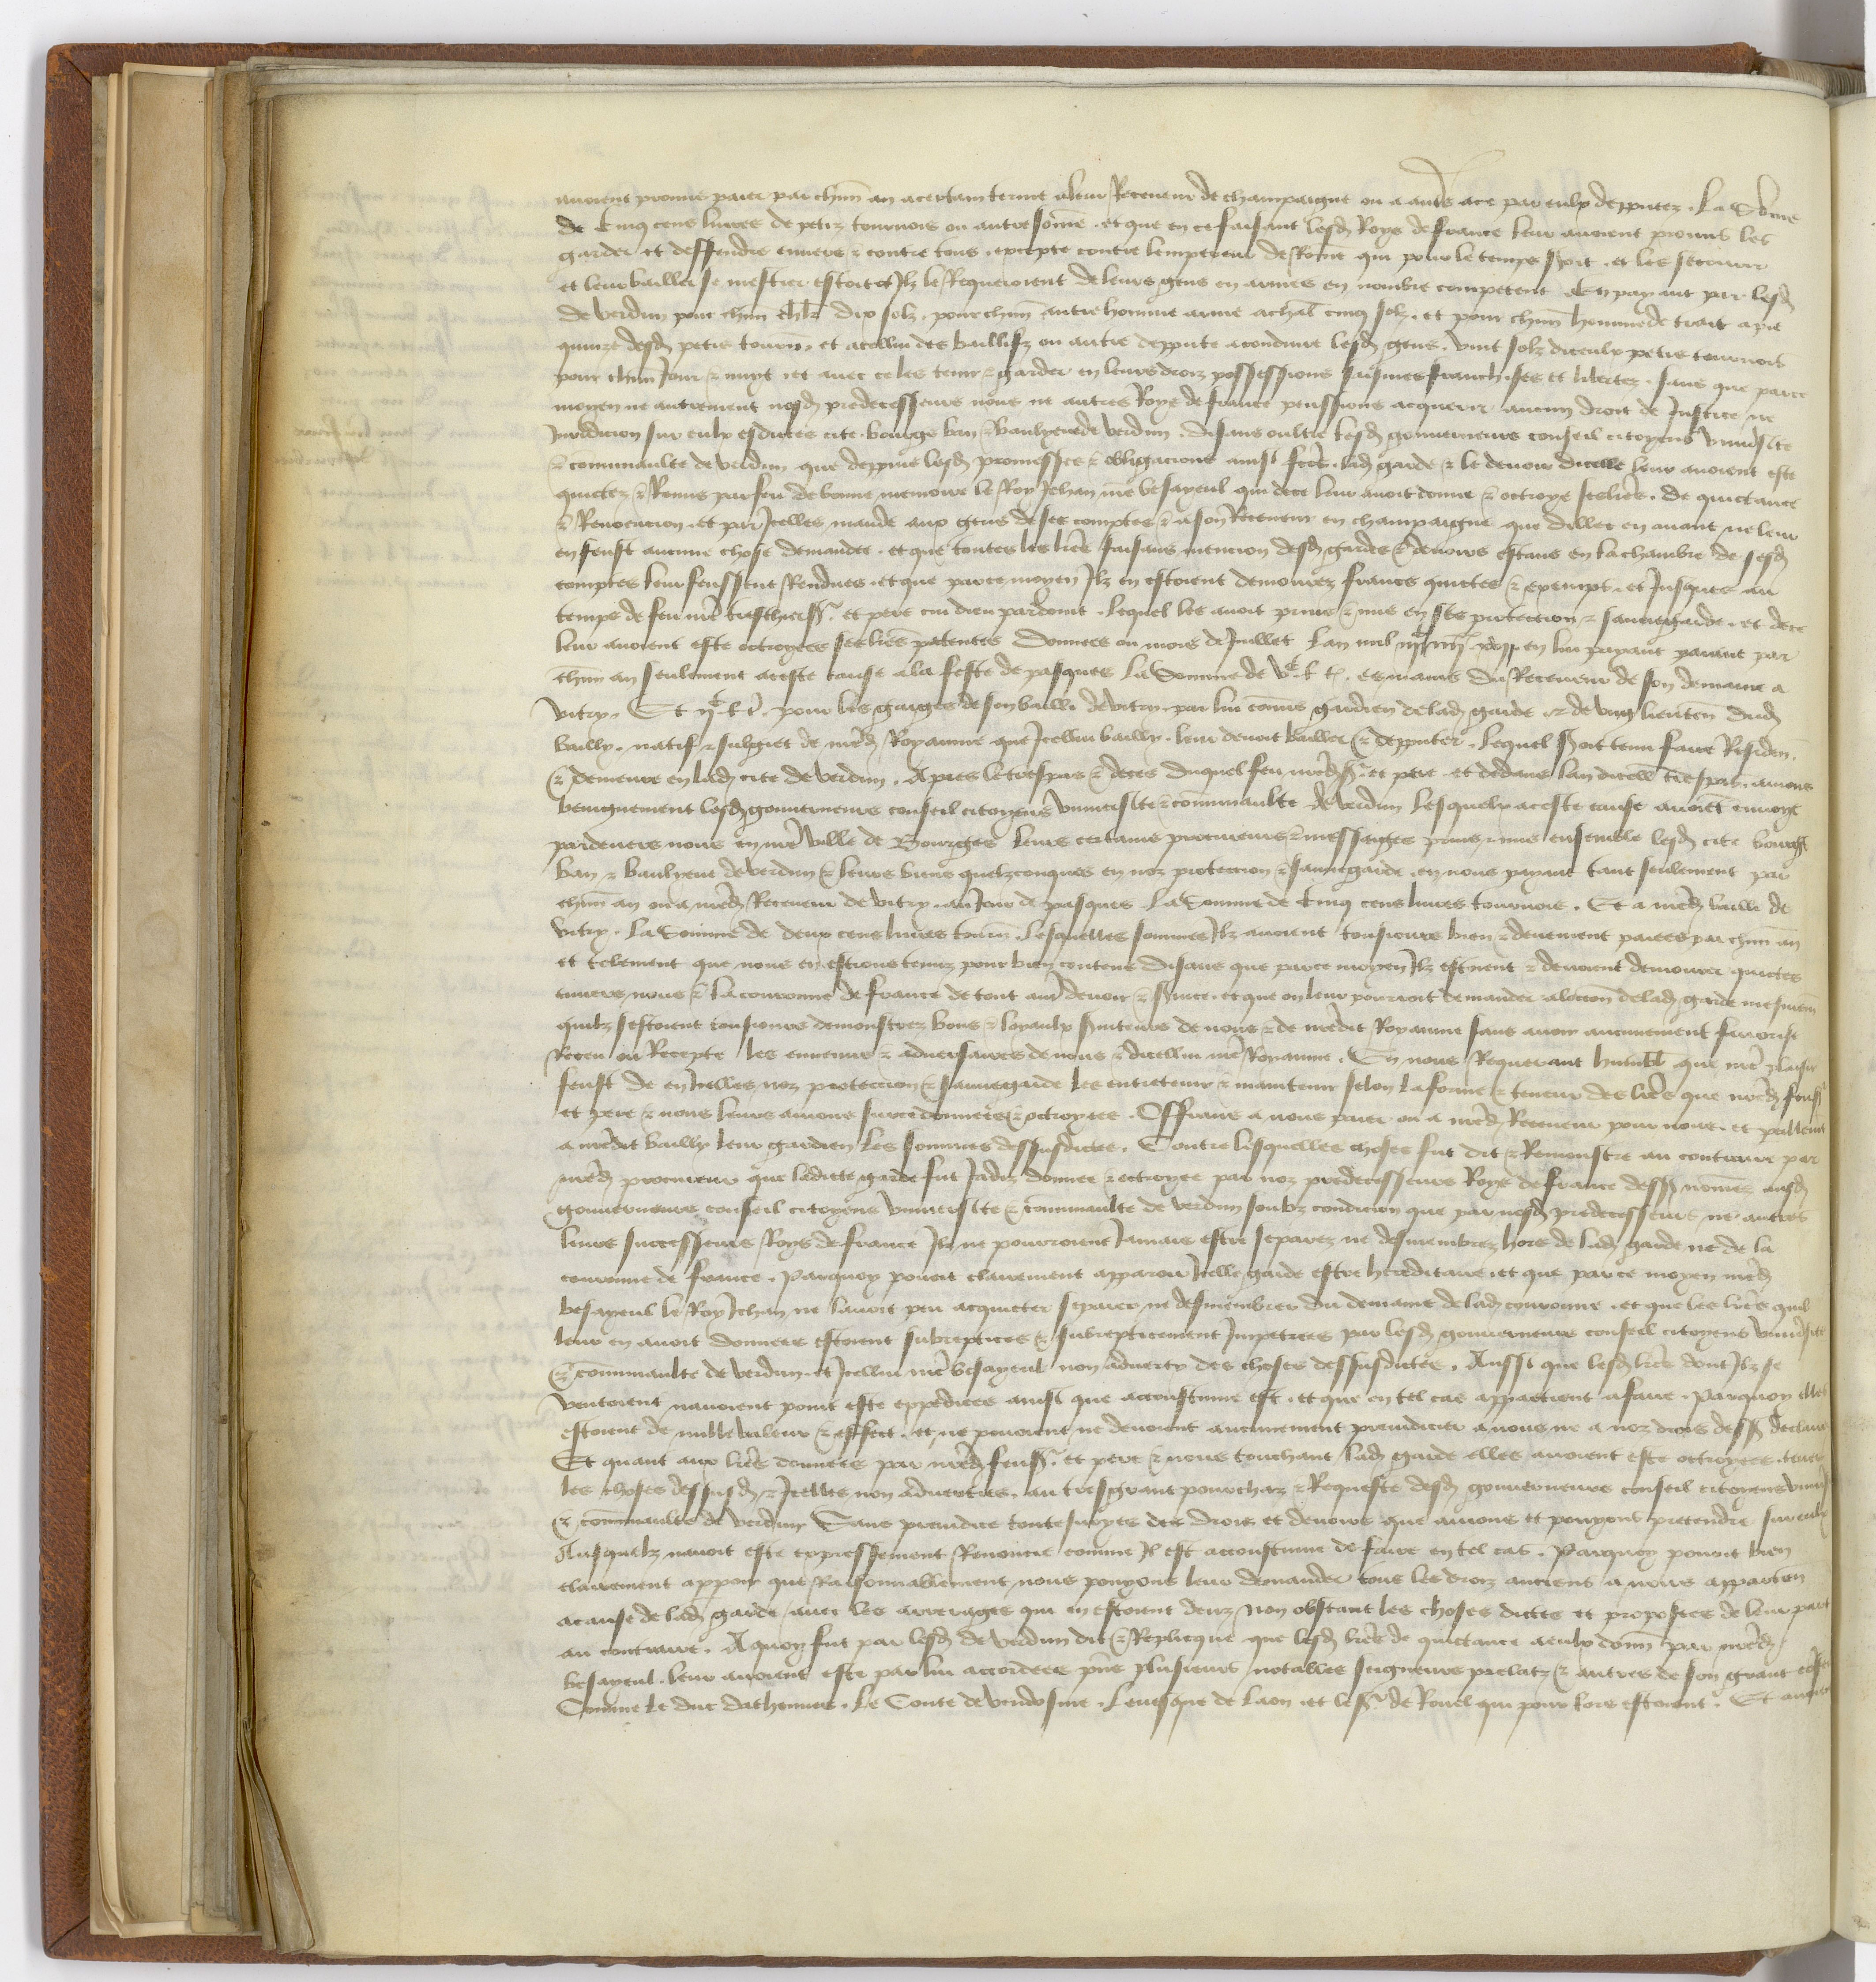 avoient promis paier par chun an a certain terme a leur Receveur de champaigne ou a autres a ce par eulx depputez . La Some
de Cinq cens livres de petiz tournois ou autre some . et que en ce faisant lesd Roys de france leur avoient promis les
garder et deffendre envers & contre tous . excepte contre lempereur de Rome qui pour le temps seroit . et les secourir
et leur bailler se mestier estoit et Ilz le Requeroient de leurs gens en armes en nombre competent En payant par lesd
de verdun pour chun chlr dix solz . pour chun autre homme arme a chal cinq solz . et pour chun homme de trait a pie
quinze desd petis tourn . et a cellui des baillifz ou autre deppute a conduire lesd gens . vint solz diceulx petis tournois
pour chun Jour & nuyt . et avec ce les tenir & garder en leurs droiz possessions saisines franchises et libertez . sans que par ce
moyen ne autrement nosd predecesseurs nous ne autres Roys de france peussions acquerir aucun droit de Justice ne
Juridicion sur eulx esdictes cite . bourgs ban & banlyeue de verdun . disans oultre lesd gouverneurs conseil citoyens universite
& communaulte de verdun que depuis lesd promesses & obligacions ainsi fces . lad garde & le devoir dicelle leur avoient este
quictez & Remis par feu de bonne memoire le Roy Jehan nre besayeul qui de ce leur avoit donne & octroye ses lres . de quictance
& Revocacion . et par Jcelles mande aux gens de ses comptes & a son Receveur en champaigne que dillec en avant ne leur
en feust aucune chose demandee . et que toutes les lres faisans mencion desd gardes & devoirs estans en la chambre de sesd
comptes leur feussent Rendues . et que par ce moyen Ilz en estoient demourez francs quictes & exempt . et Jusques au
temps de feu nre treschier s et pere cui dieu pardoint . Lequel les avoit prins & mis en ses protection & sauvegarde . et de ce
leur avoient este octroyees ses lres patentes Donnees ou mois de Juillet Lan mil en lui payant par
chun an seulement a ceste cause a la feste de pasques La Somme de vc l t . es mains du Receveur de son demaine a
vitry . Et ijc l t . pour les gaiges de son bailli de vitry . par lui comis gardien de lad garde . & de ung lieuten dud
bailly . natif & subgiet de nred Royaume que Jcellui bailly . leur devoit bailler & depputer . lequel seroit tenu faire Residen .
& demeure en lad cite de verdun . Apres le trespas & deces duquel feu nred s et pere et dedans lan dicell trespas . avons
benignement lesd gouverneurs conseil citoyens universite & communaulte de verdun Lesquelx a ceste cause avoient envoye
pardevers nous en nre ville de Bourges leurs certains procureurs & messaiges prins & mis ensemble lesd cite bourgs
ban & banlyeue de verdun & leurs biens quelzconques en noz protection & sauvegarde . en nous payant tant seulement par
chun an ou a nred Receveur de vitry . au Jour de pasques La Somme de Cinq cens livres tournois . Et a nred bailli de
vitry . La Somme de deux cens livres tourn . Lesquelles sommes Ilz avoient tousjours bien & deuement paiees par chun an
et telement que nous en estions tenuz pour bien contens disans que par ce moyen Ilz estoient & devoient demourer quictes
envers nous & la couronne de france de tout autre devoir & service . et que on leur pourroit demander a loccasion de lad garde mesmem
quilz sestoient tousjours demonstrez bons & loyaulx serviteurs de nous & de nredit Royaume sans avoir aucunement favorise
Receu ou Recepte les ennemis & adversaires de nous & dicellui nre Royaume . En nous Requerant humbl que nre plaisir
feust de en Jcelles noz protection & sauvegarde les entretenir & maintenir selon la forme & teneur des lres que nred feu s
et pere & nous leurs avions sur ce donnees & octroyees . Offrans a nous paier ou a nred Receveur pour nous et
a nredit bailly leur gardien les sommes dessusdictes . Contre lesquelles choses fut dit & Remonstre au contraire par
nred procureur que ladicte garde fut Jadiz donnee & octroyee par noz predecesseurs Roys de france dess nomez ausd
gouverneurs conseil citoyens universite & communaulte de verdun soubz condicion que par nosd predecesseurs ne autres
leurs successeurs Roys de france Ilz ne pourroient Jamais estre separez ne desmembrez hors de lad garde ne de la
couronne de france . Parquoy povoit clairement apparoir Jcelle garde estre hereditaire . et que par ce moyen nred
besayeul le Roy Jehan ne lavoit peu acquicter separer ne desmembrer du demaine de lad couronne . et que les lres quil
leur en avoit donnees estoient subreptices & subrepticement Jmpetrees par lesd gouverneurs conseil citoyens universite
& communaulte de verdun . et Jcellui nre besayeul non adverty des choses dessusdictes . Aussi que lesd lres dont Ilz se
ventoient navoient point este expediees ainsi que acoustume est . et que en tel cas appartient a faire . Parquoy elles
estoient de nulle valeur & effect . et ne povoient ne devoient aucunement prejudicier a nous ne a noz drois dess declairez
Et quant aux lres donnees par nred feu s et pere & nous touchant lad garde elles avoient este octroyees . teues
les choses dessusd & Jcelles non adverties . au tresgrant pourchaz & Requeste desd gouverneurs conseil citoyens univ
& communaulte de verdun Sans prejudice toutesvoyes des drois et devoirs que avions et povyons pretendre sur eulx
Ausquelz navoit este expressement Renoncie comme Il est acoustume de faire en tel cas . Parquoy povoit bien
clairement apparoir que Raisonnablement nous povyons leur demander tous les droiz anciens a nous apparten
a cause de lad garde / avec les arrerages qui en estoient deuz Non obstant les choses dictes et proposees de leur part
au contraire . A quoy fut par lesd de verdun dit & Replicque que lesd lres de quictance a eulx donn par nred
besayeul . leur avoient este par lui accordees pns plusieurs notables seigneurs prelatz & autres de son grant
Comme le duc dathenes . Le Conte de vendosme . Levesque de Laon . et le s de Revel qui pour lors estoient . Et